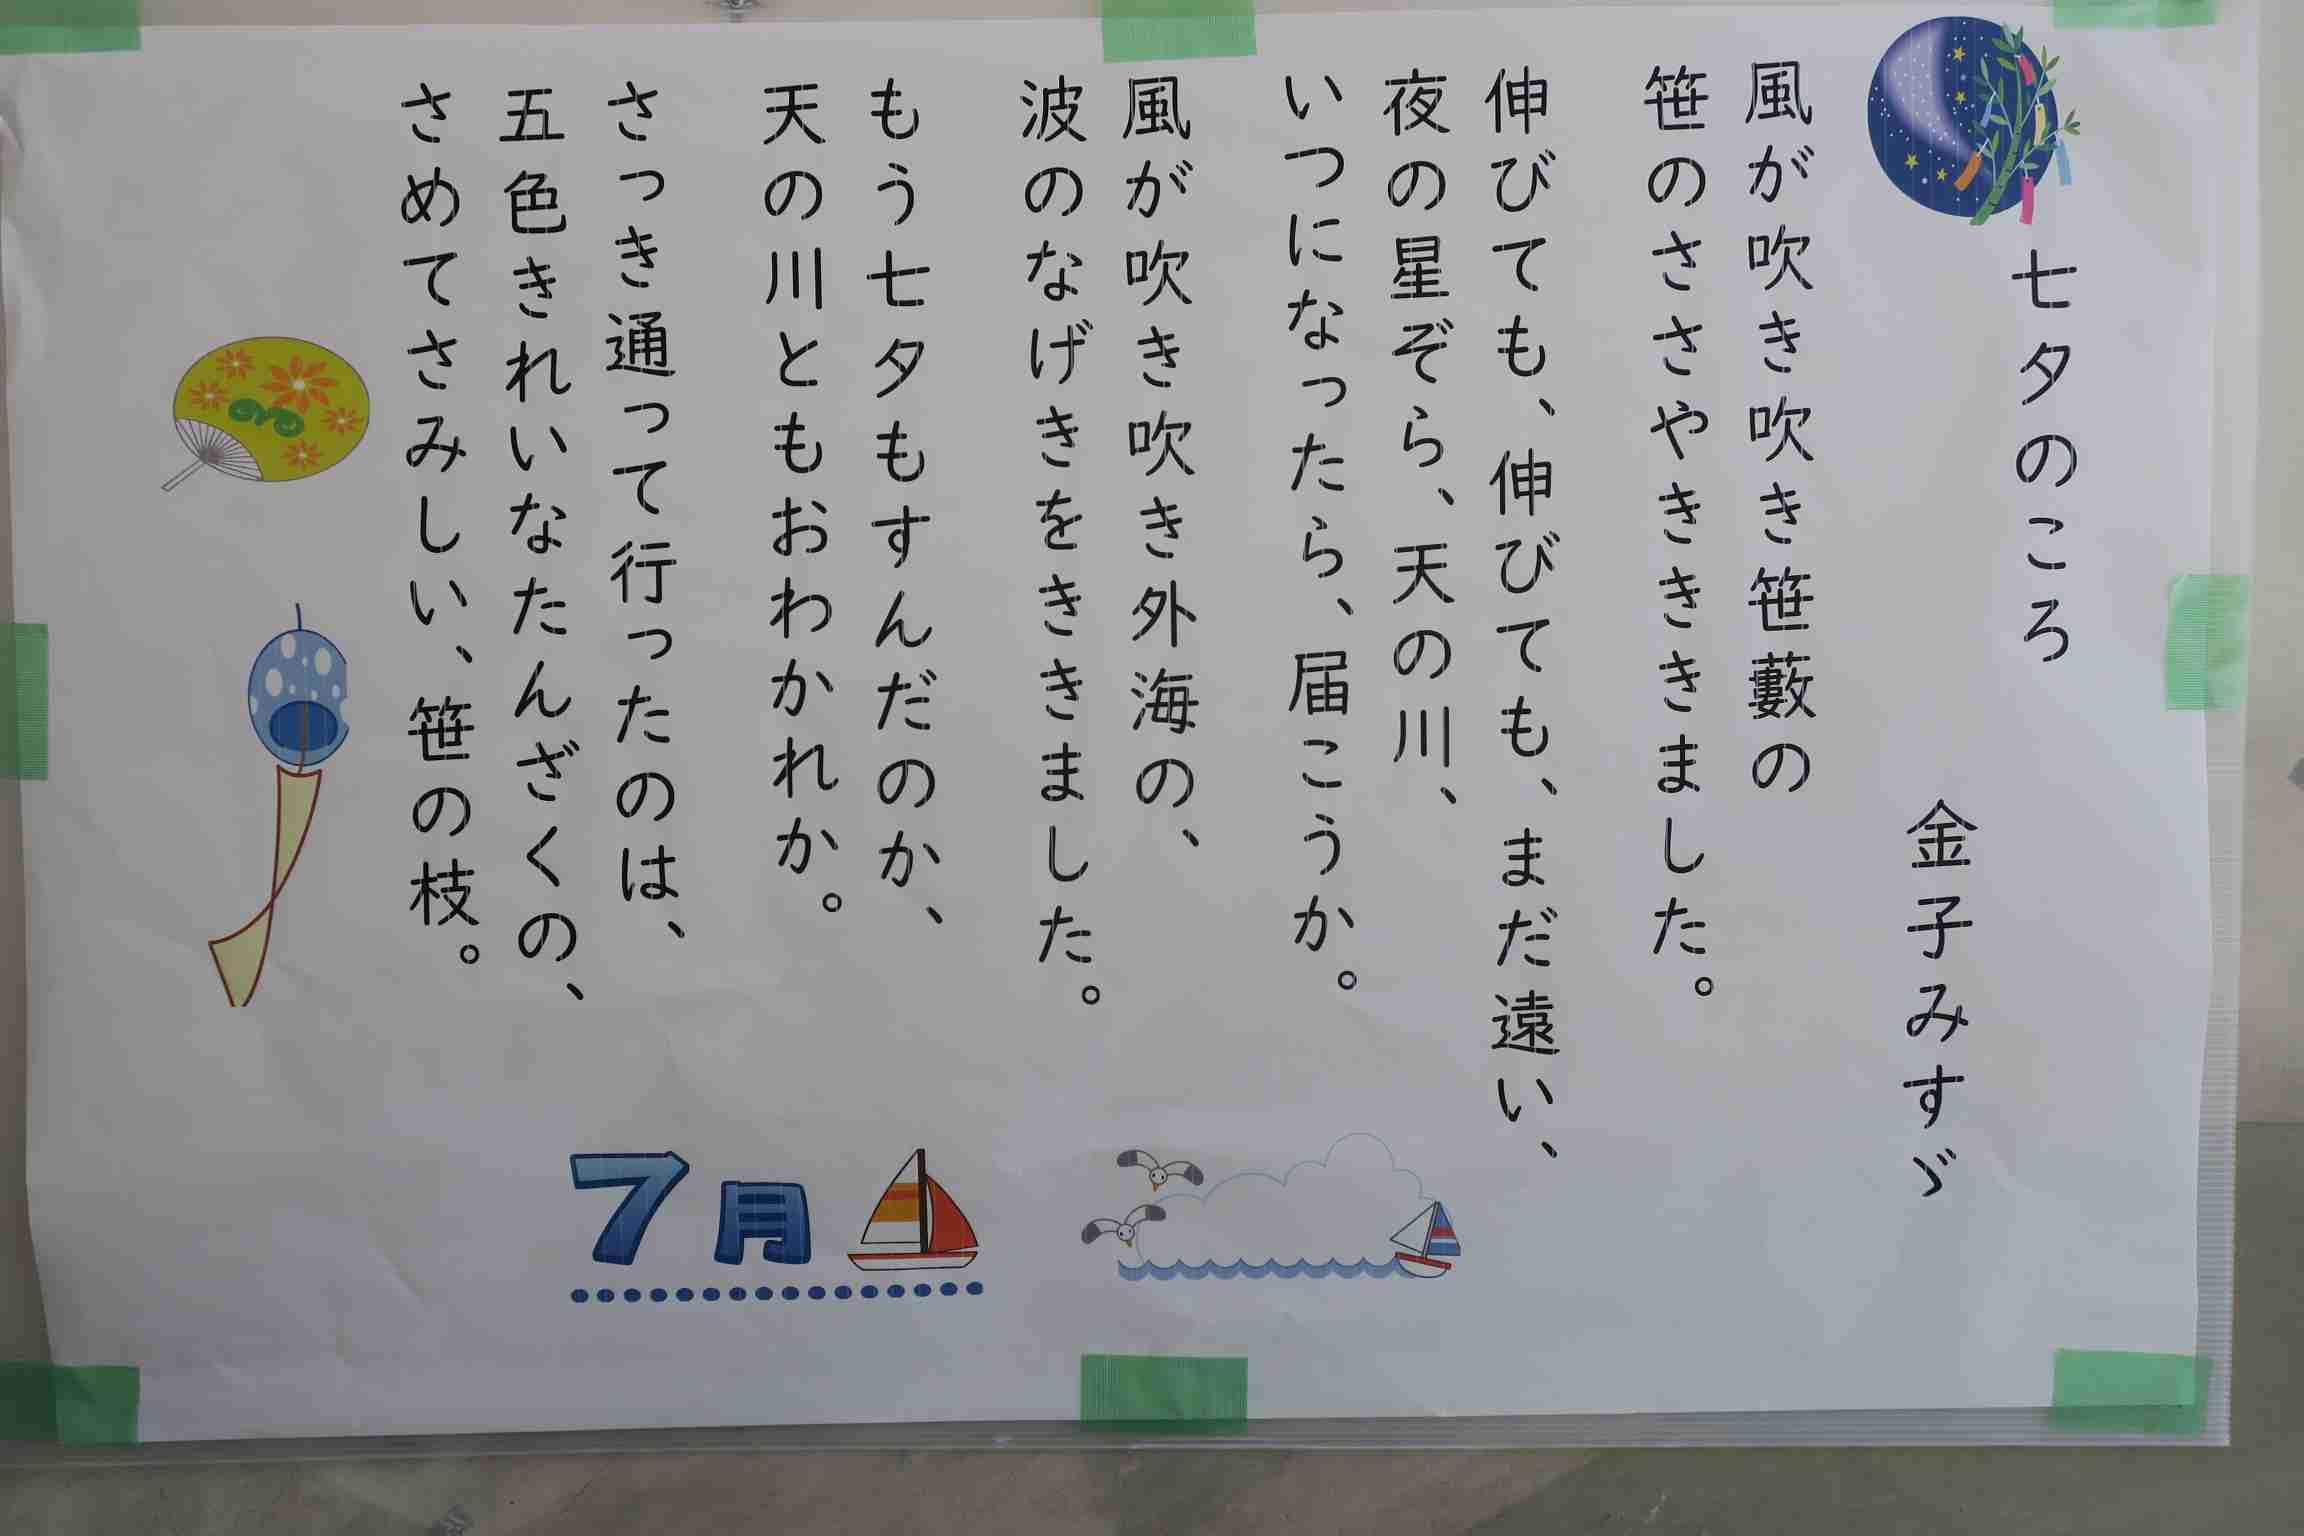 七夕のころ
金子みすゞ
風が吹き吹き笹藪の
笹のささやきききました。
伸びても、伸びても、まだ遠い、
夜の星ぞら、天の川、
いつになったら、届こうか。
風が吹き吹き外海の、
波のなげきをききました。
もう七夕もすんだのか、
天の川ともおわかれか。
さっき通って行ったのは、
五色きれいなたんざくの、
さめてさみしい、笹の枝。
7月